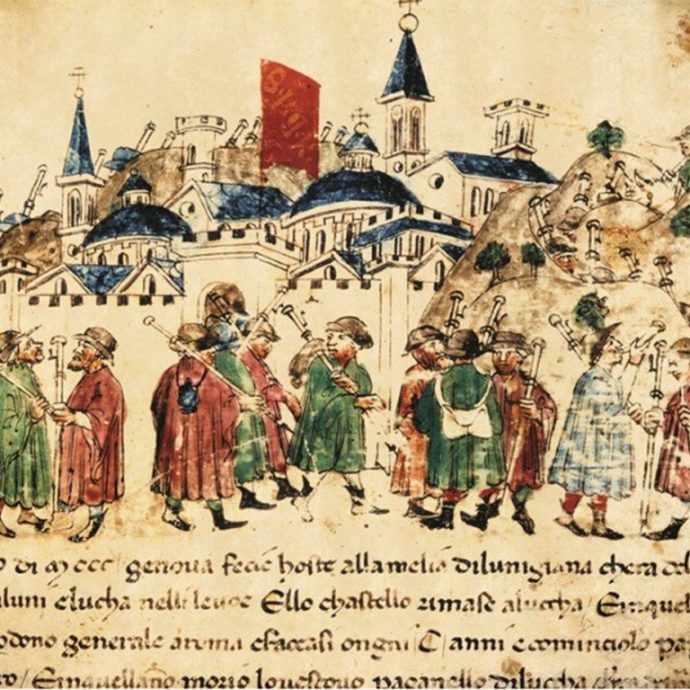 o di MCCC / genova fecie hoste allamelia dilunigiana chera del
iluni elucha nelli levoe Ello chastello rimase alucha / Einquel
odono generale aroma efaccasi ongni / C / anni ecominciolo pap
ro / Einquellano morio lovescovo paganello dilucha chera